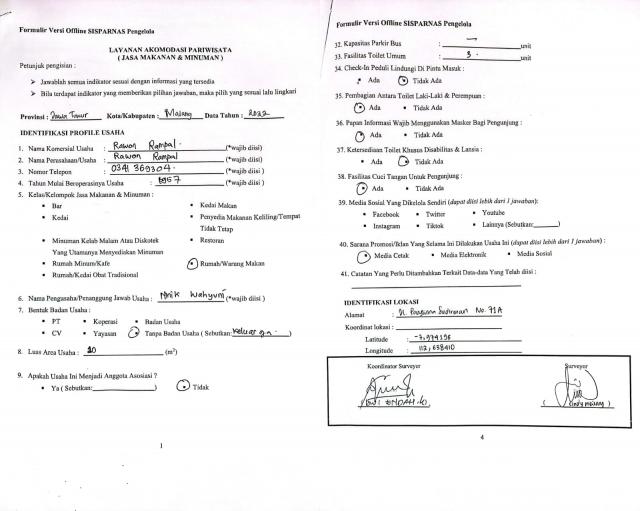 Formulir Versi Offline SISPARNAS Pengelola
LAYANAN AKOMODASI PARIWISATA
( JASA MAKANAN & MINUMAN )
Petunjuk pengisian :
➢ Jawablah semua indikator sesuai dengan informasi yang tersedia
➢ Bila terdapat indikator yang memberikan pilihan jawaban, maka pilih yang sesuai lalu lingkari
Provinsi : Jawa Timur Kota/Kabupaten : Malang Data Tahun : 2022
IDENTIFIKASI PROFILE USAHA
1. Nama Komersial Usaha : Rawon Rampal. (*wajib diisi)
2. Nama Perusahaan/Usaha : Rawon Rampal (*wajib diisi)
3. Nomor Telepon : 0341 369304. (*wajib diisi )
4. Tahun Mulai Beroperasinya Usaha : 1957 (*wajib diisi )
5. Kelas/Kelompok Jasa Makanan & Minuman :
• Bar
• Kedai Makan
• Kedai
• Penyedia Makanan Keliling/Tempat Tidak Tetap
• Minuman Kelab Malam Atau Diskotek Yang Utamanya Menyediakan Minuman
• Restoran
• Rumah Minum/Kafe
• Rumah/Warung Makan
• Rumah/Kedai Obat Tradisional
6. Nama Pengusaha/Penanggung Jawab Usaha : Wahyuni (*wajib diisi )
7. Bentuk Badan Usaha :
• PT • Koperasi • Badan Usaha
• CV • Yayasan • Tanpa Badan Usaha ( Sebutkan: Keluarga. )
8. Luas Area Usaha : (m²)
9. Apakah Usaha Ini Menjadi Anggota Asosiasi ?
• Ya ( Sebutkan: ) • Tidak
1
Formulir Versi Offline SISPARNAS Pengelola
32. Kapasitas Parkir Bus : - unit
33. Fasilitas Toilet Umum : 3. unit
34. Check-In Peduli Lindungi Di Pintu Masuk :
• Ada • Tidak Ada
35. Pembagian Antara Toilet Laki-Laki & Perempuan :
• Ada • Tidak Ada
36. Papan Informasi Wajib Menggunakan Masker Bagi Pengunjung :
• Ada • Tidak Ada
37. Ketersediaan Toilet Khusus Disabilitas & Lansia :
• Ada • Tidak Ada
38. Fasilitas Cuci Tangan Untuk Pengunjung :
• Ada • Tidak Ada
39. Media Sosial Yang Dikelola Sendiri (dapat diisi lebih dari 1 jawaban):
• Facebook • Twitter • Youtube
• Instagram • Tiktok • Lainnya (Sebutkan: )
40. Sarana Promosi/Iklan Yang Selama Ini Dilakukan Usaha Ini (dapat diisi lebih dari 1 jawaban) :
• Media Cetak • Media Elektronik • Media Sosial
41. Catatan Yang Perlu Ditambahkan Terkait Data-data Yang Telah diisi :
IDENTIFIKASI LOKASI
Alamat : Jl. Panglima Sudirman No. 71A
Koordinat lokasi :
Latitude : -7,974196
Longitude : 112,638410
Koordinator Surveyor
Surveyor
4